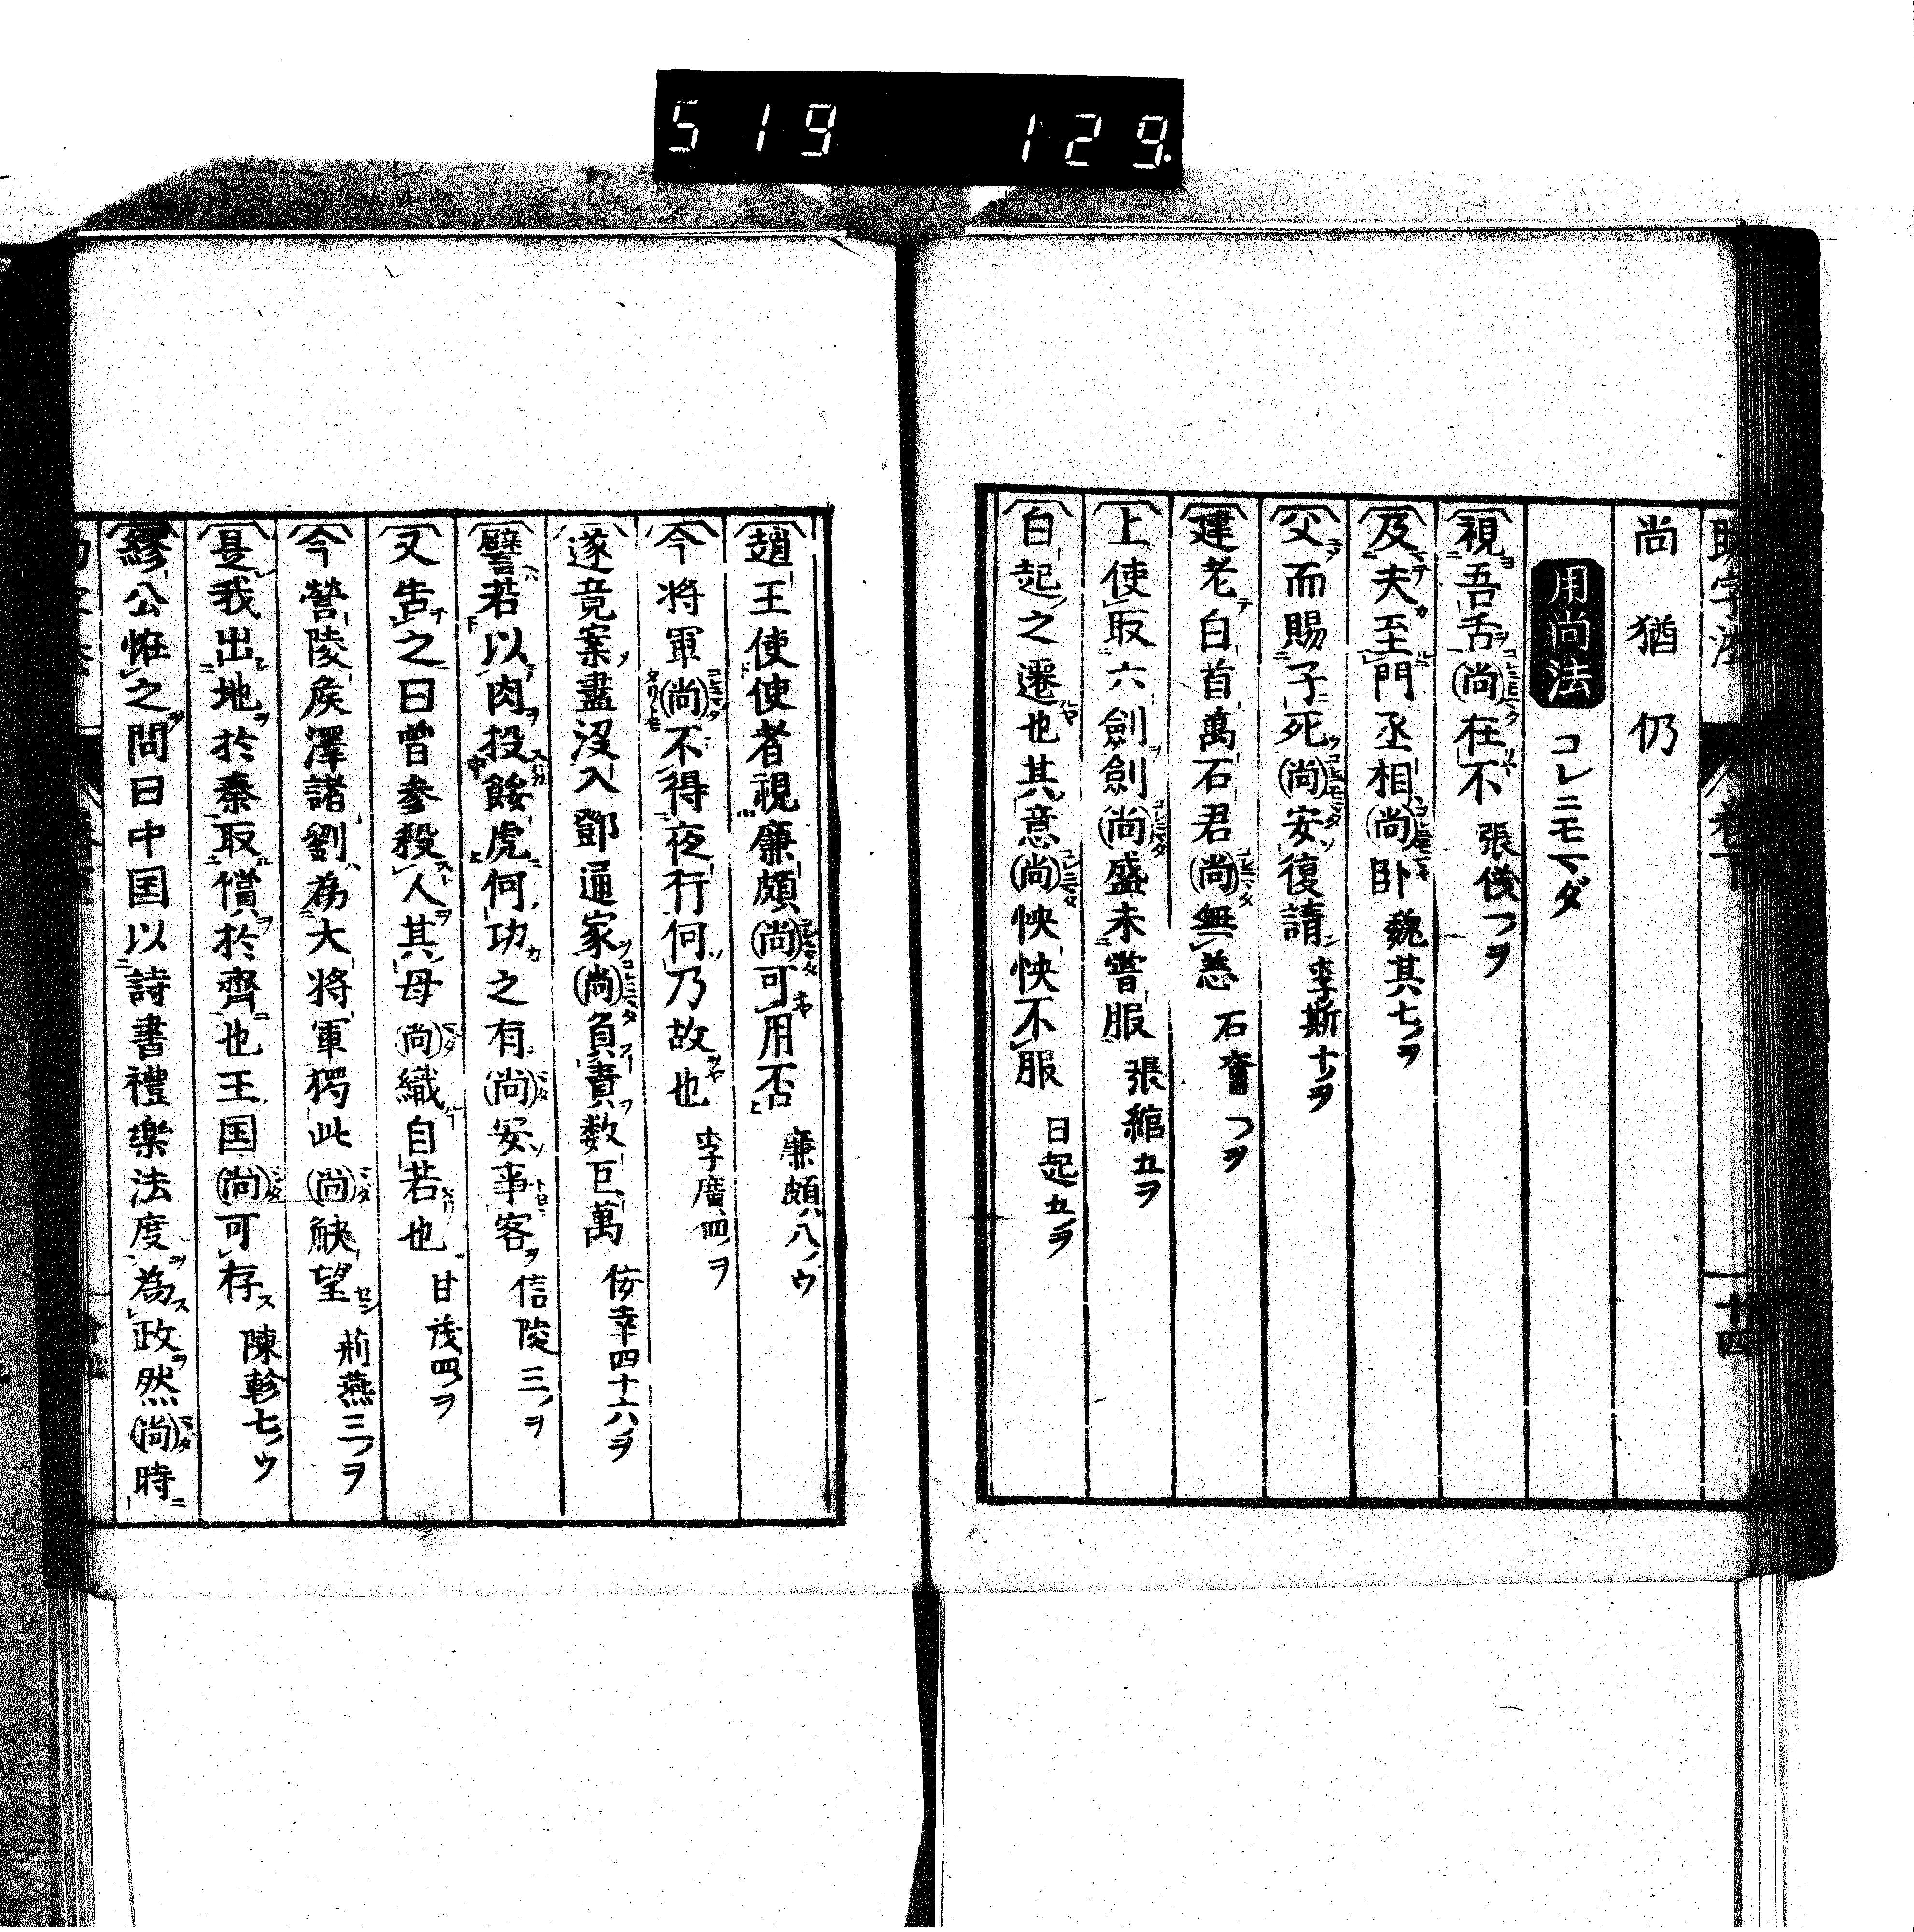 519 129.
尚 猶 仍
用尚法 コレニモマダ
視吾舌尚在不 張儀一ヲ
及夫至門丞相尚臥 魏其七ノヲ
父而賜子死尚安復請 李斯十ノヲ
建老白首萬石君尚無恙 石奮一ヲ
上使取六劍劍尚盛未嘗服 張綰五ヲ
白起之遷也其意尚怏怏不服 白起五ノヲ
趙王使使者視廉頗尚可用否 廉頗八ノウ
今将軍尚不得夜行何乃故也 李廣四ノヲ
遂竟案盡沒入鄧通家尚負責数巨萬 佞幸四十六ノヲ
譬若以肉投餒虎何功之有尚安事客 信陵三ノヲ
又告之曰曾参殺人其母尚織自若也 甘茂四ノヲ
今營陵侯澤諸劉為大将軍獨此尚觖望 荊燕三ノヲ
是我出地於秦取償於齊也王国尚可存 陳軫七ノウ
繆公恠之問曰中国以詩書禮樂法度為政然尚時